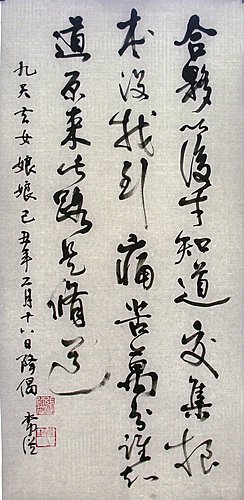 合夥以後才知道交集根
本沒找到痛苦萬分誰知
道原來此路是脩道
九天玄女娘娘己丑年二月十六日降偈